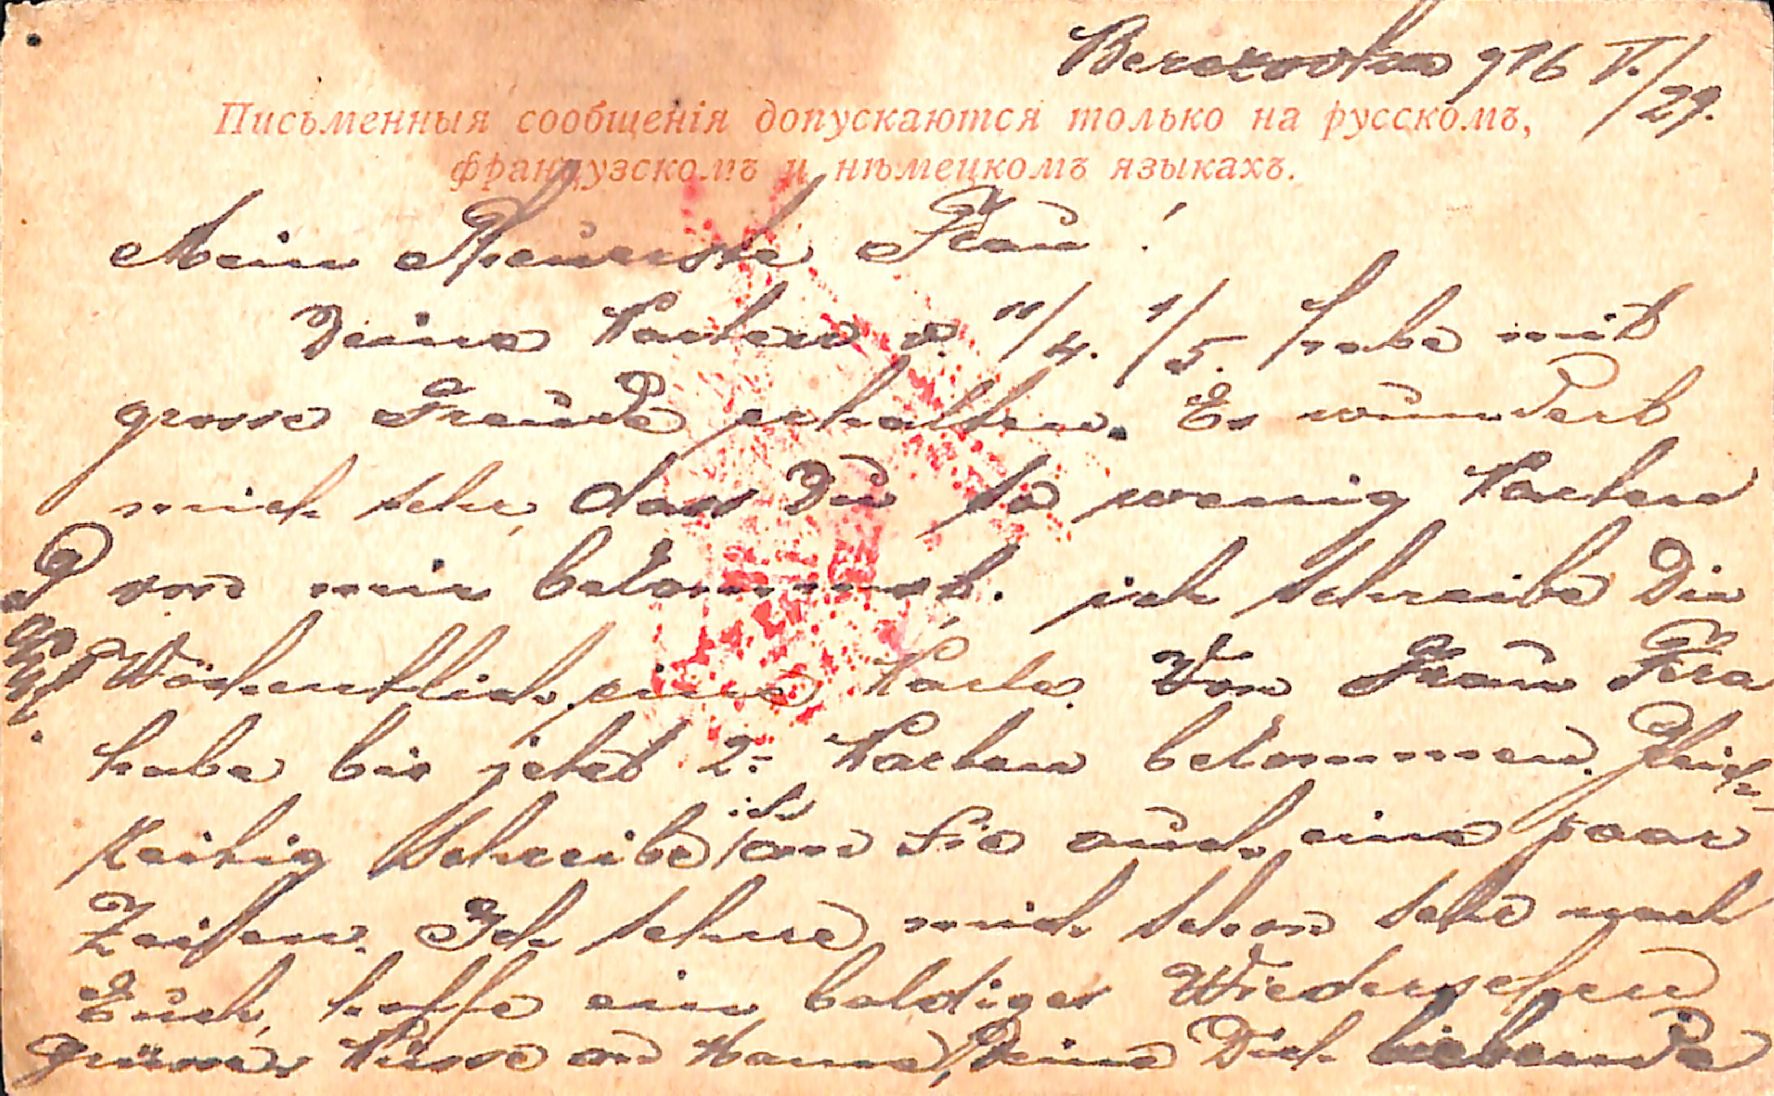 Beresowka 916 V./29.
Письменныя сообщенія допускаются только на русскомъ,
французскомъ и нѣмецкомъ языкахъ.
Mein Theuerste Frau!
Deine Karten v. 11/4. 1/5. habe mit
grosse Freude erhalten. Es wundert
mich sehr, dass Du so wenig Karten
von mir bekommst. ich schreibe Dir
Wöchentlich eine Karte. Von Frau
habe bis jetzt 2 Karten bekommen. Gleich-
zeitig schreibe ich an Sie auch eine paar
Zeilen. Ich sehne mich schon sehr nach
Euch, hoffe ein baldiges Wiedersehen
Grüsse, Küsse an Deine Dich liebende